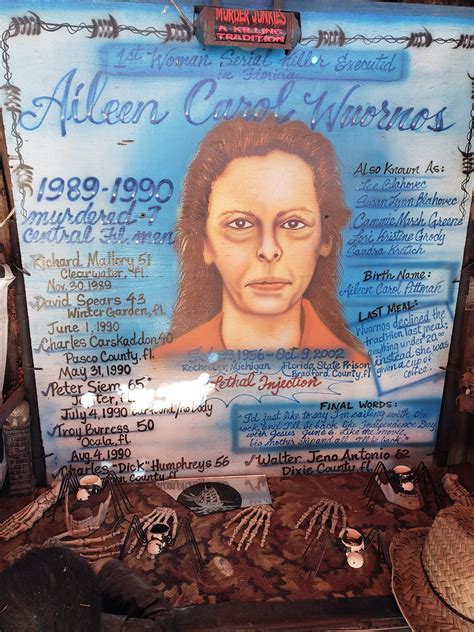 MURDER JUNKIES
A KILLING
TRADITION
1st Woman Serial Killer Executed
in Florida
Aileen Carol Wuornos
1989-1990
murdered-7
Central Fl. men
Richard Mallory 51
Clearwater, Fl.
Nov. 30, 1989
David Spears 43
Winter Garden, Fl.
June 1, 1990
Charles Carskaddon 40
Pasco County, Fl
May 31, 1990
Peter Siem 65
Jupiter, Fl
July 4, 1990 car found/no body
Troy Burress 50
Ocala, Fl.
Aug 4, 1990
Charles "Dick" Humphreys 56
County, Fl
Also Known As:
Lee Blahovec
Susan Lynn Blahovec
Cammie Marsh Greene
Lori Kristine Grody
Sandra Kretsch
Birth Name:
Aileen Carol Pittman
Last Meal:
Wuornos declined the
tradition last meal;
anything under $20.00
instead she was
given a cup of
coffee.
1956 - Oct 9, 2002
Rochester, Michigan
Florida State Prison
Bradford County, Fl
Lethal Injection
Final Words:
"I'd just like to say I'm sailing with the
rock and I'll be back like Independence Day
with Jesus June 6. Like the movie,
big mother ship and all. I'll be back."
Walter Jeno Antonio 62
Dixie County, Fl.